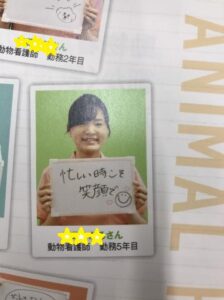 さん
動物看護師 勤務2年目
忙しい時こそ
笑顔で
さん
動物看護師 勤務5年目
ANIMAL